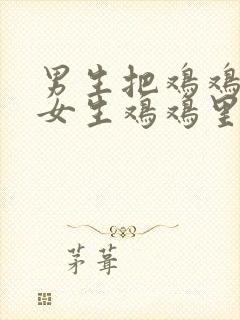 男生把鸡鸡
女生鸡鸡里
茅葺